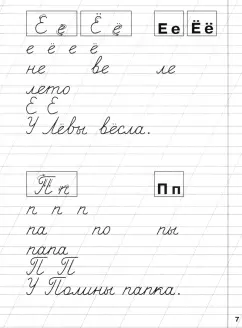 Е е Ё ё Е е Ё ё
е ё е ё
не ве ле
лето
Е Ё
У Лёвы вёсла.
П п П п
п п п
па по пы
папа
П П
У Полины папка.
7